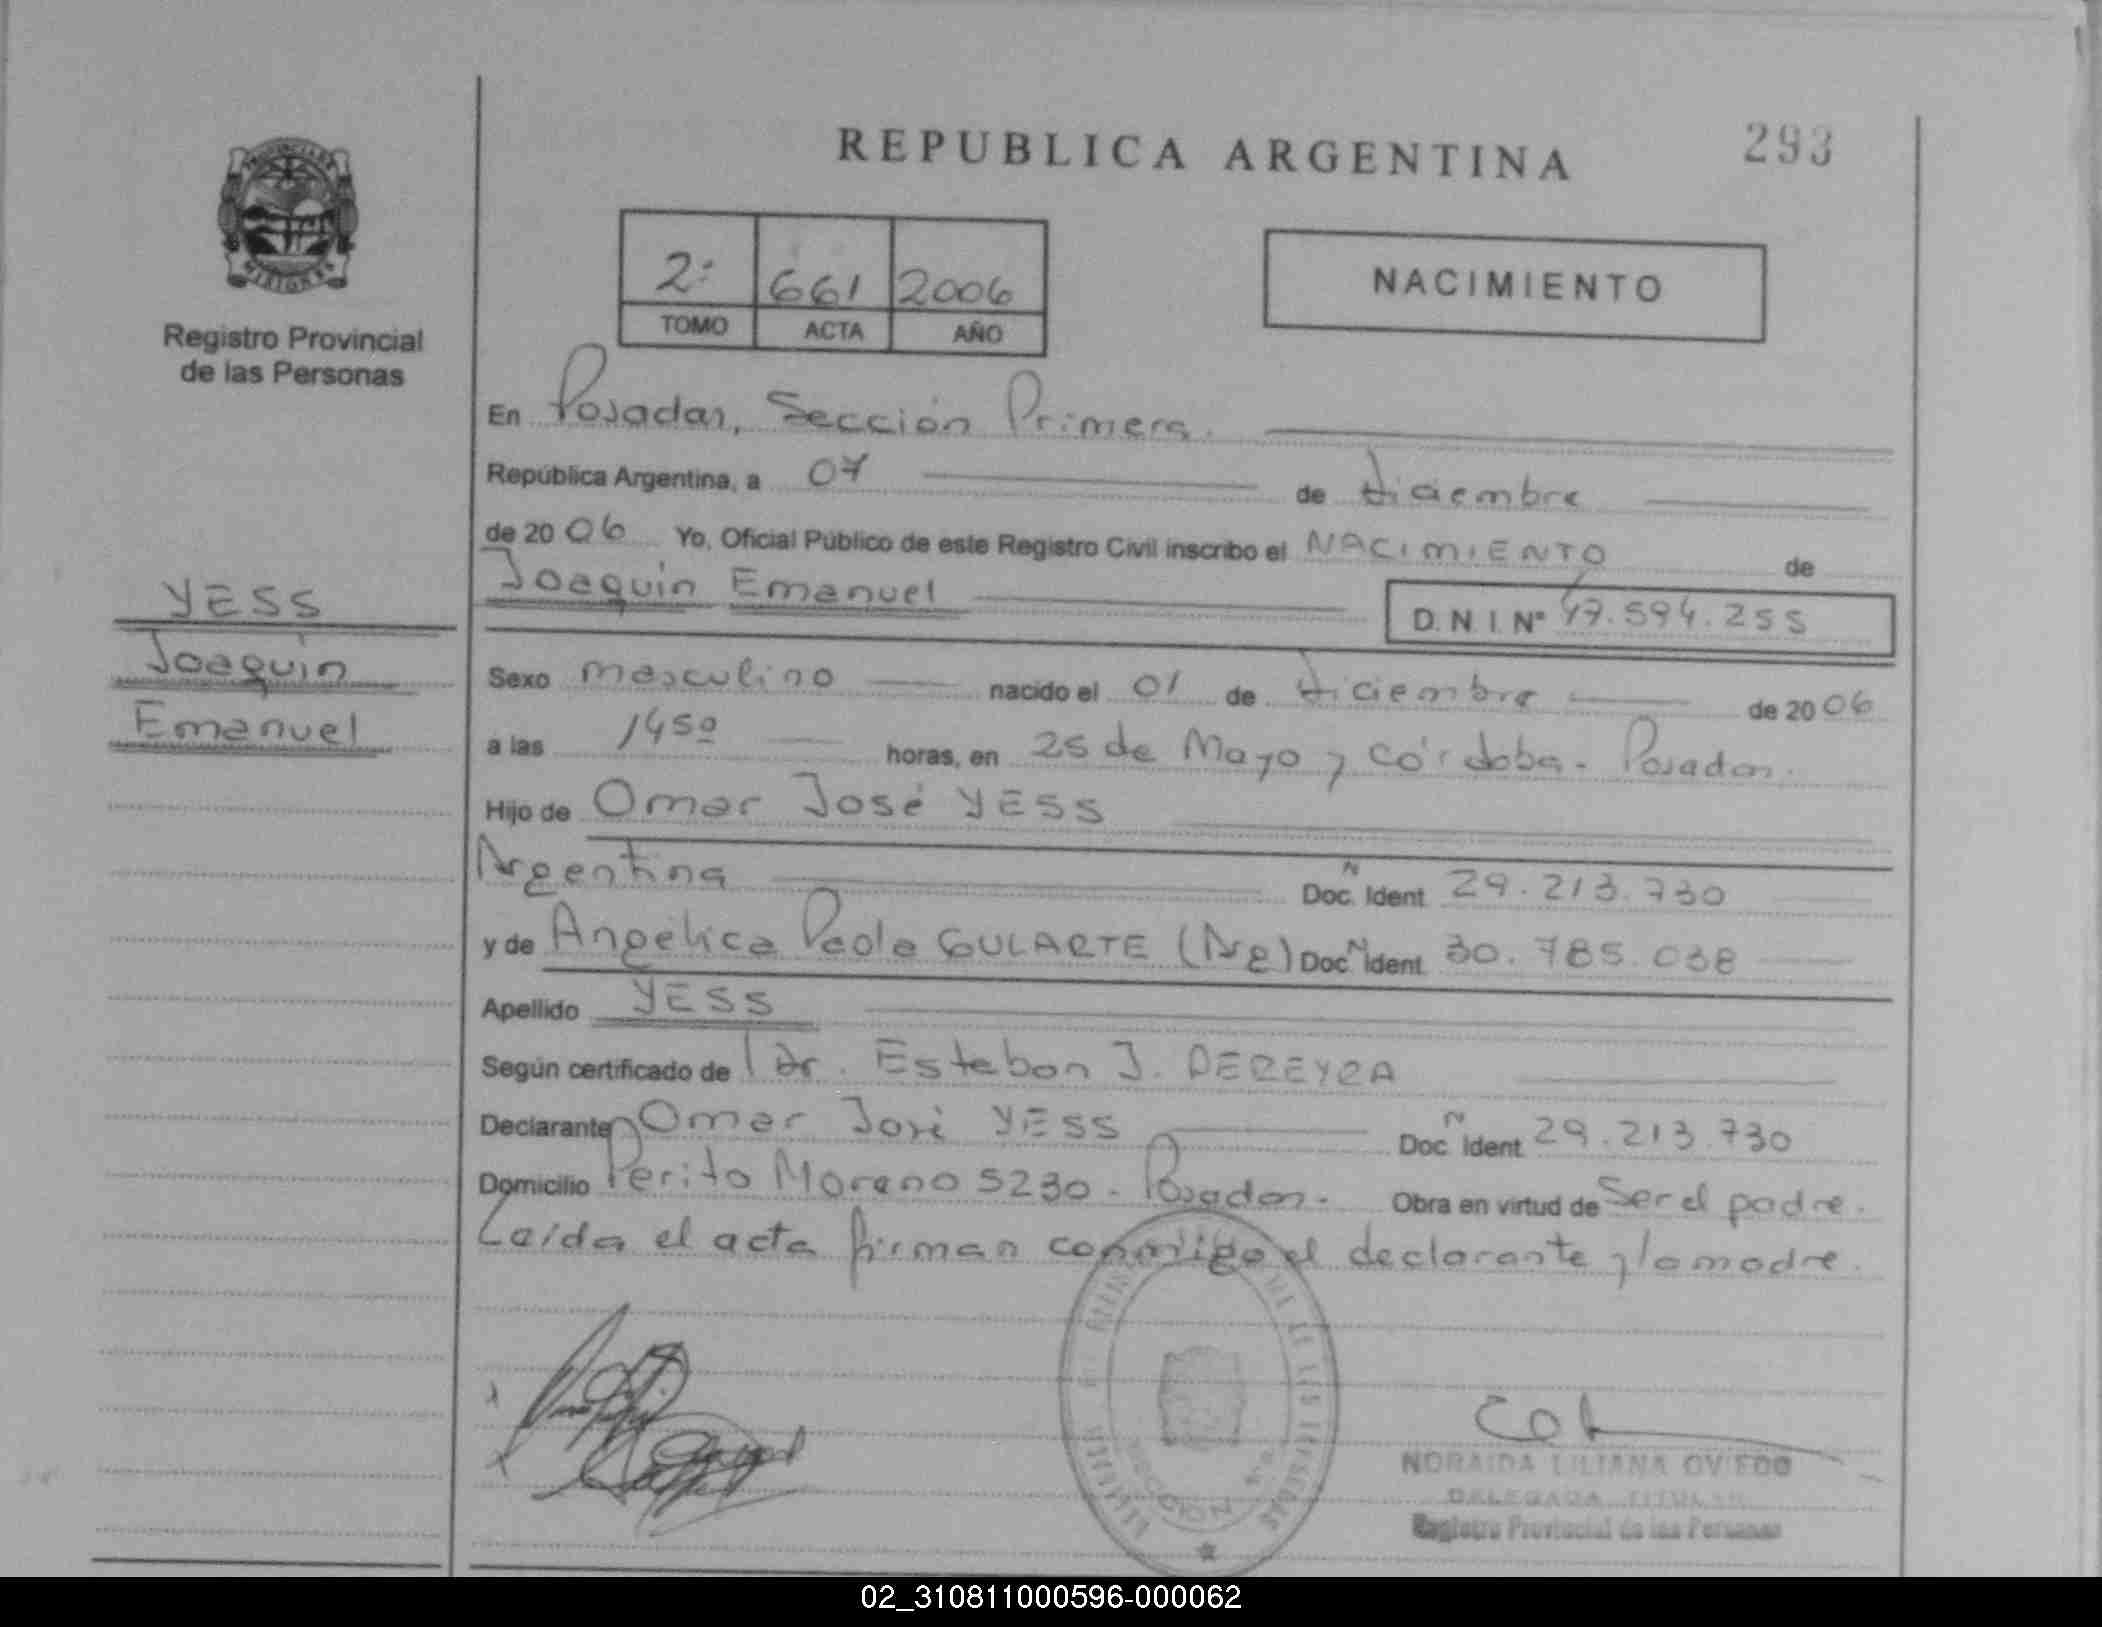 REPUBLICA ARGENTINA
293
Registro Provincial
de las Personas
2º 661 2006
TOMO ACTA AÑO
NACIMIENTO
En Posadas, Sección Primera.
República Argentina, a 07 de diciembre
de 2006 Yo, Oficial Público de este Registro Civil inscribo el NACIMIENTO de
Joaquin Emanuel D.N.I. Nº 47.594.255
YESS
Joaquin
Emanuel
Sexo masculino nacido el 01 de diciembre de 2006
a las 1450 horas, en 25 de Mayo y Córdoba - Posadas.
Hijo de Omar José YESS
Argentina Doc. N Ident 29.213.730
y de Angélica Paola GULARTE (Arg) Doc N Ident 30.785.038
Apellido YESS
Según certificado de Dr. Esteban J. PEREYRA
Declarante Omar José YESS Doc N Ident 29.213.730
Domicilio Perito Moreno 5230 - Posadas. Obra en virtud de Ser el padre.
Leída el acta firman conmigo el declarante y la madre.
NORAIDA LILIANA OVIEDO
DELEGADA TITULAR
Registro Provincial de las Personas
02_310811000596-000062